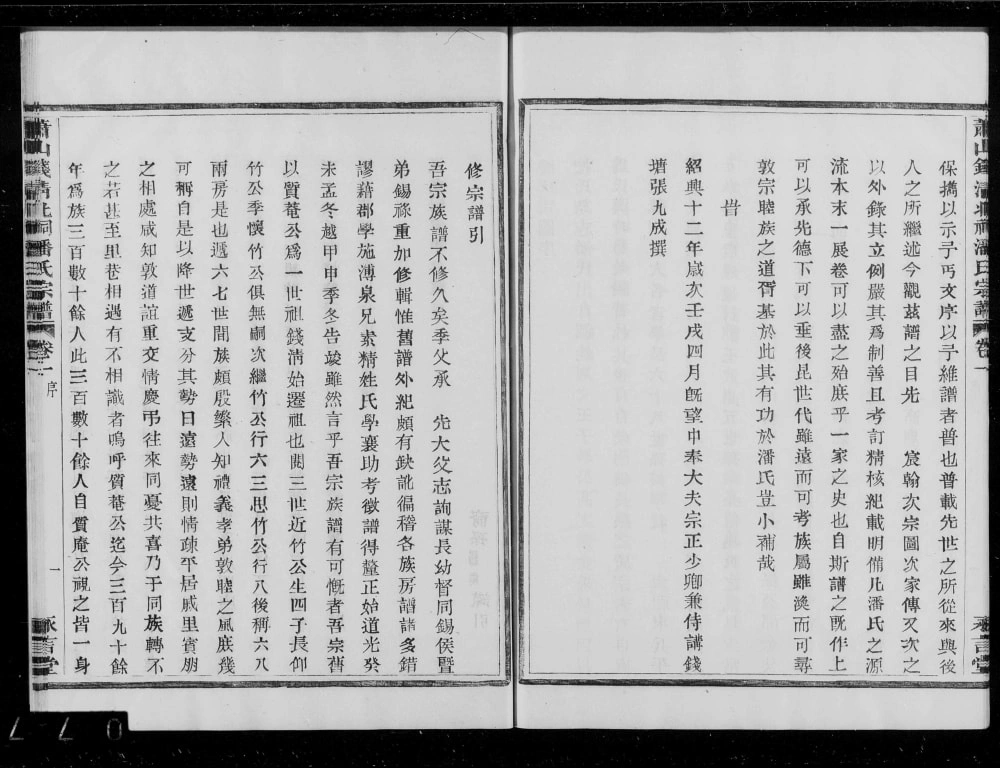 蕭山錢清北祠潘氏宗譜 卷一
永言堂
保攜以示予丐文序以予維譜者普也普載先世之所從來與後
人之所繼述今觀茲譜之目先 宸翰次宗圖次家傳又次之
以外錄其立例嚴其爲制善且考訂精核紀載明備凡潘氏之源
流本末一展卷可以盡之殆庶乎一家之史也自斯譜之旣作上
可以承先德下可以垂後昆世代雖遠而可考族屬雖渙而可尋
敦宗睦族之道胥基於此其有功於潘氏豈小補哉
旹
紹興十二年歲次壬戌四月旣望中奉大夫宗正少卿兼侍講錢
塘張九成撰
修宗譜引
吾宗族譜不修久矣季父承 先大父志詢謀長幼督同錫侯暨
弟錫祿重加修輯惟舊譜外紀頗有缺訛徧稽各族房譜諸多錯
謬藉郡學施溥泉兄索精姓氏學襄助考徵譜得釐正始道光癸
未孟冬越甲申季冬告竣雖然言乎吾宗族譜有可慨者吾宗舊
以質菴公爲一世祖錢清始遷祖也閱三世近竹公生四子長仰
竹公季懷竹公俱無嗣次繼竹公行六三思竹公行八後稱六八
兩房是也遞六七世間族頗殷繁人知禮義孝弟敦睦之風庶幾
可稱自是以降世遞支分其勢日遠勢遠則情疎平居戚里賓朋
之相處咸知敦道誼重交情慶弔往來同憂共喜乃于同族轉不
之若甚至里巷相遇有不相識者嗚呼質菴公迄今三百九十餘
年爲族三百數十餘人此三百數十餘人自質庵公視之皆一身
蕭山錢清北祠潘氏宗譜 卷一 序
一
永言堂